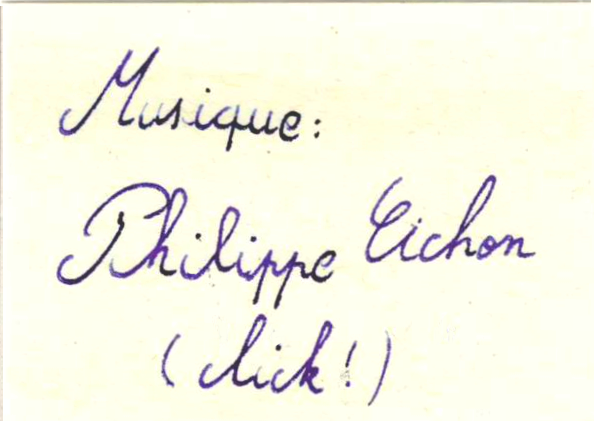 Musique:
Philippe Eichon
(click!)